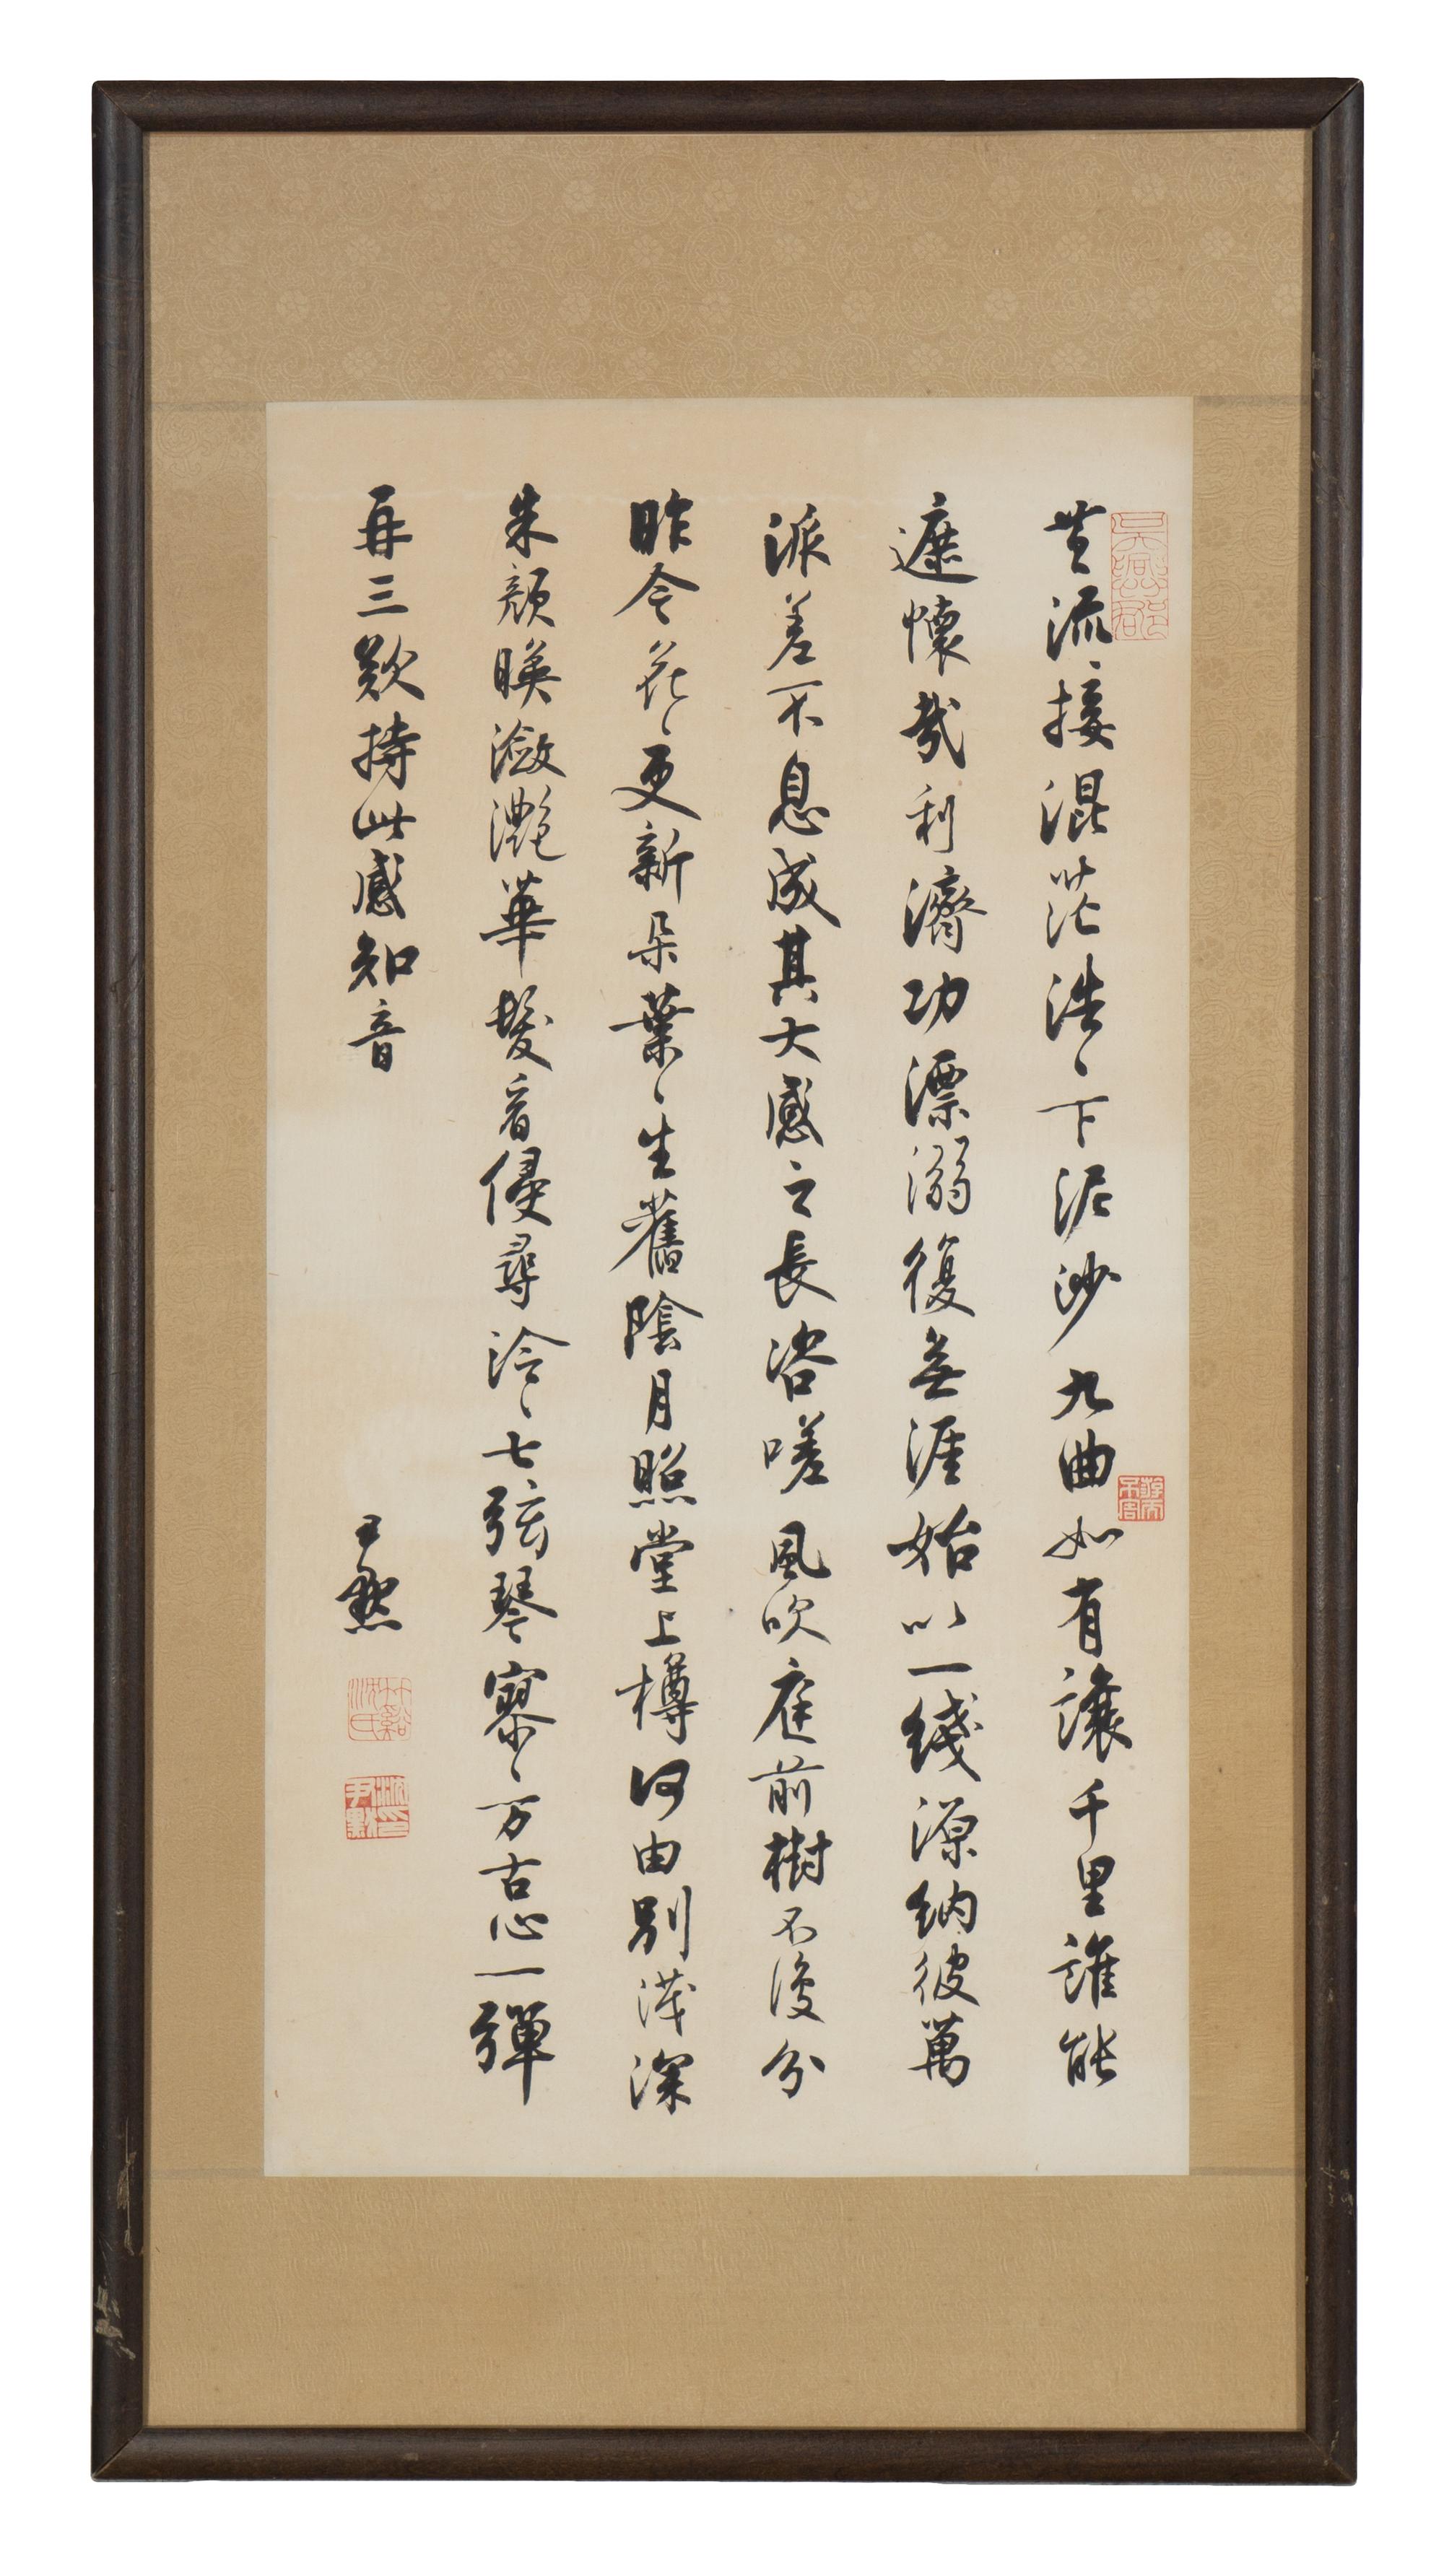 黄流接混茫浩〻下泥沙九曲如有讓千里誰能
遮懷哉利濟功漂溺復無涯始以一綫源納彼萬
派差不息成其大感之長咨嗟風吹庭前樹不復分
昨今花〻更新朵葉〻生舊陰月照堂上樽何由別淺深
朱顏暎瀲灧華髮看侵尋泠〻七弦琴寥〻万古心一彈
再三歎持此感知音
尹默
竹谿沈氏
沈尹默印